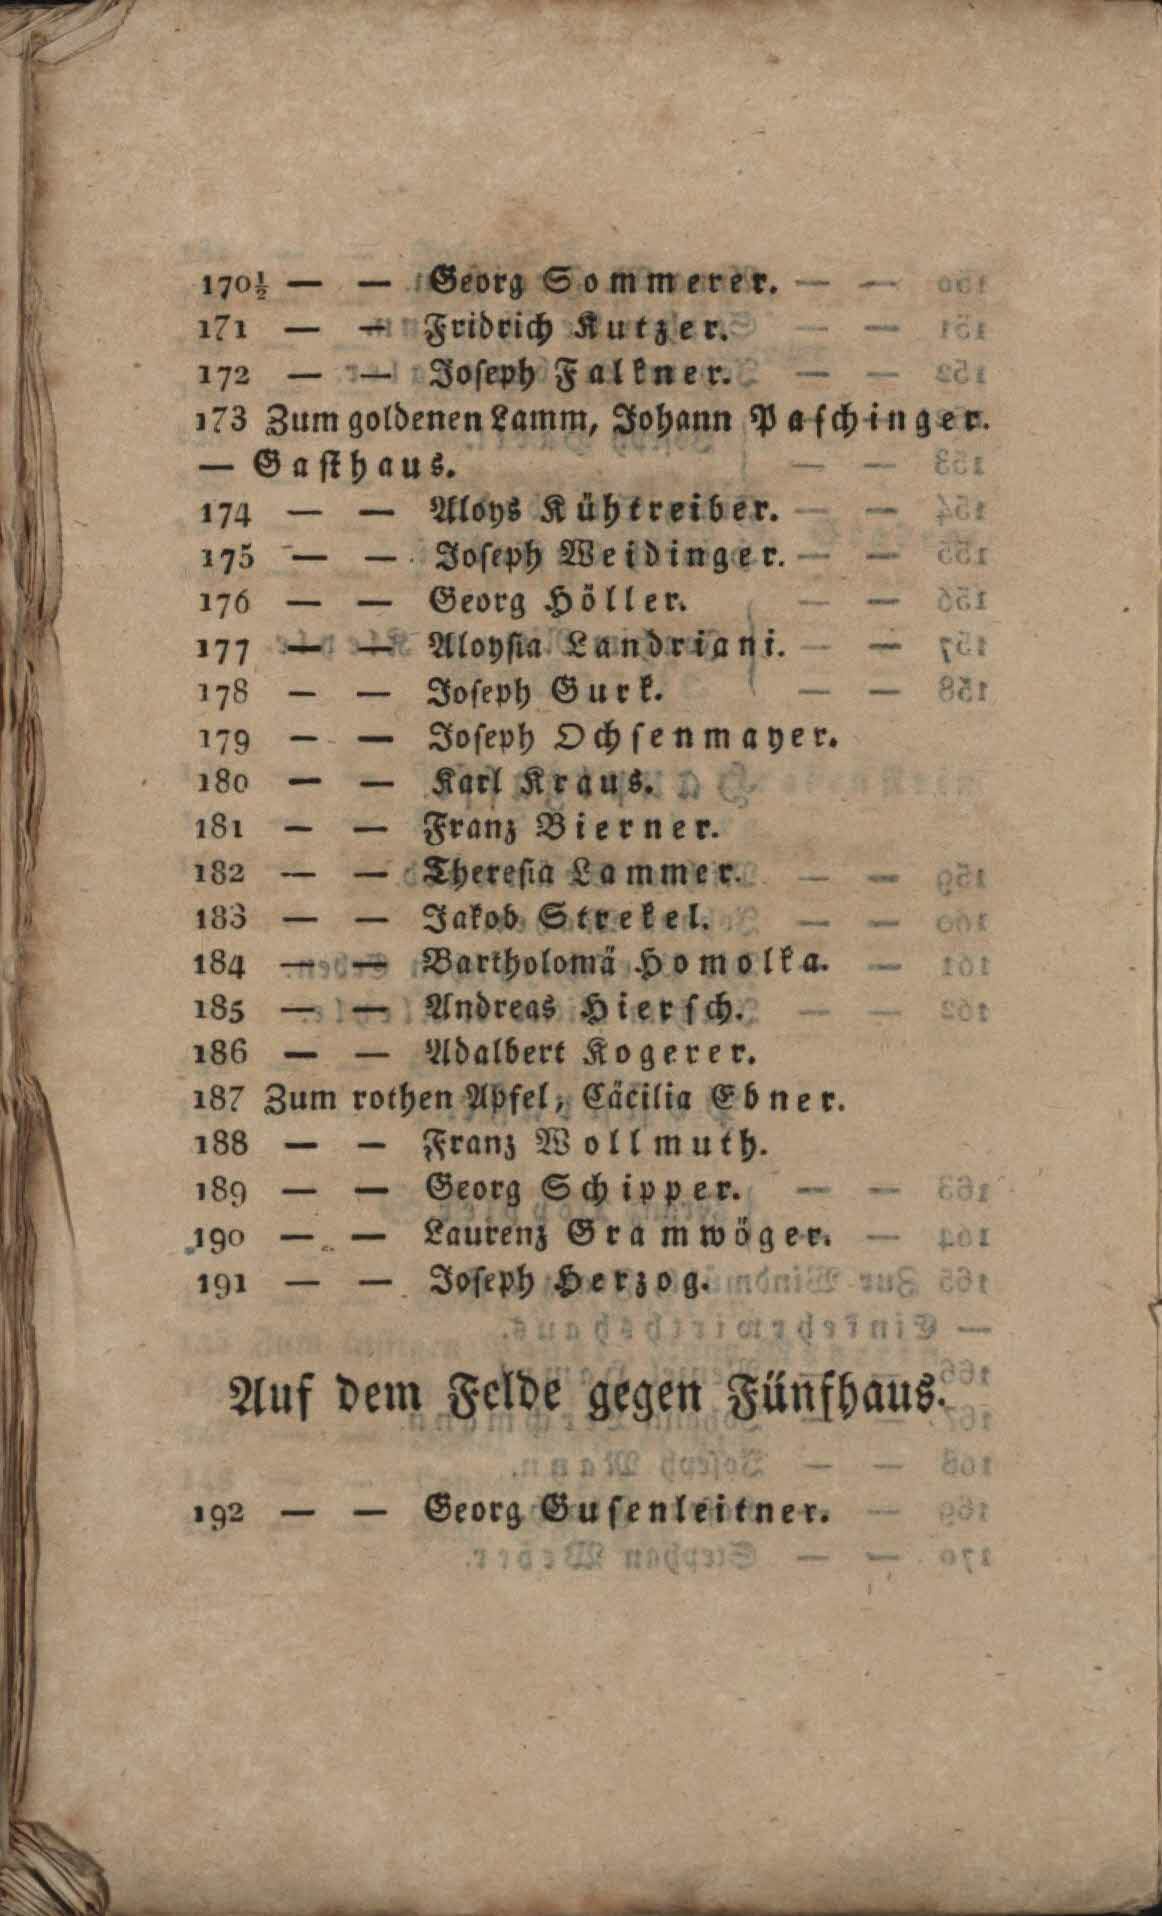 170½ — — Georg Sommerer.
171 — — Fridrich Kutzer.
172 — — Joseph Falkner.
173 Zum goldenen Lamm, Johann Paschinger.
— Gasthaus.
174 — — Aloys Kühtreiber.
175 — — Joseph Weidinger.
176 — — Georg Höller.
177 — — Aloysia Landriani.
178 — — Joseph Gurk.
179 — — Joseph Ochsenmayer.
180 — — Karl Kraus.
181 — — Franz Bierner.
182 — — Theresia Lammer.
183 — — Jakob Strekel.
184 — — Bartholomä Homolka.
185 — — Andreas Hiersch.
186 — — Adalbert Kogerer.
187 Zum rothen Apfel, Cäcilia Ebner.
188 — — Franz Wollmuth.
189 — — Georg Schipper.
190 — — Laurenz Gramwöger.
191 — — Joseph Herzog.
Auf dem Felde gegen Fünfhaus.
192 — — Georg Gusenleitner.